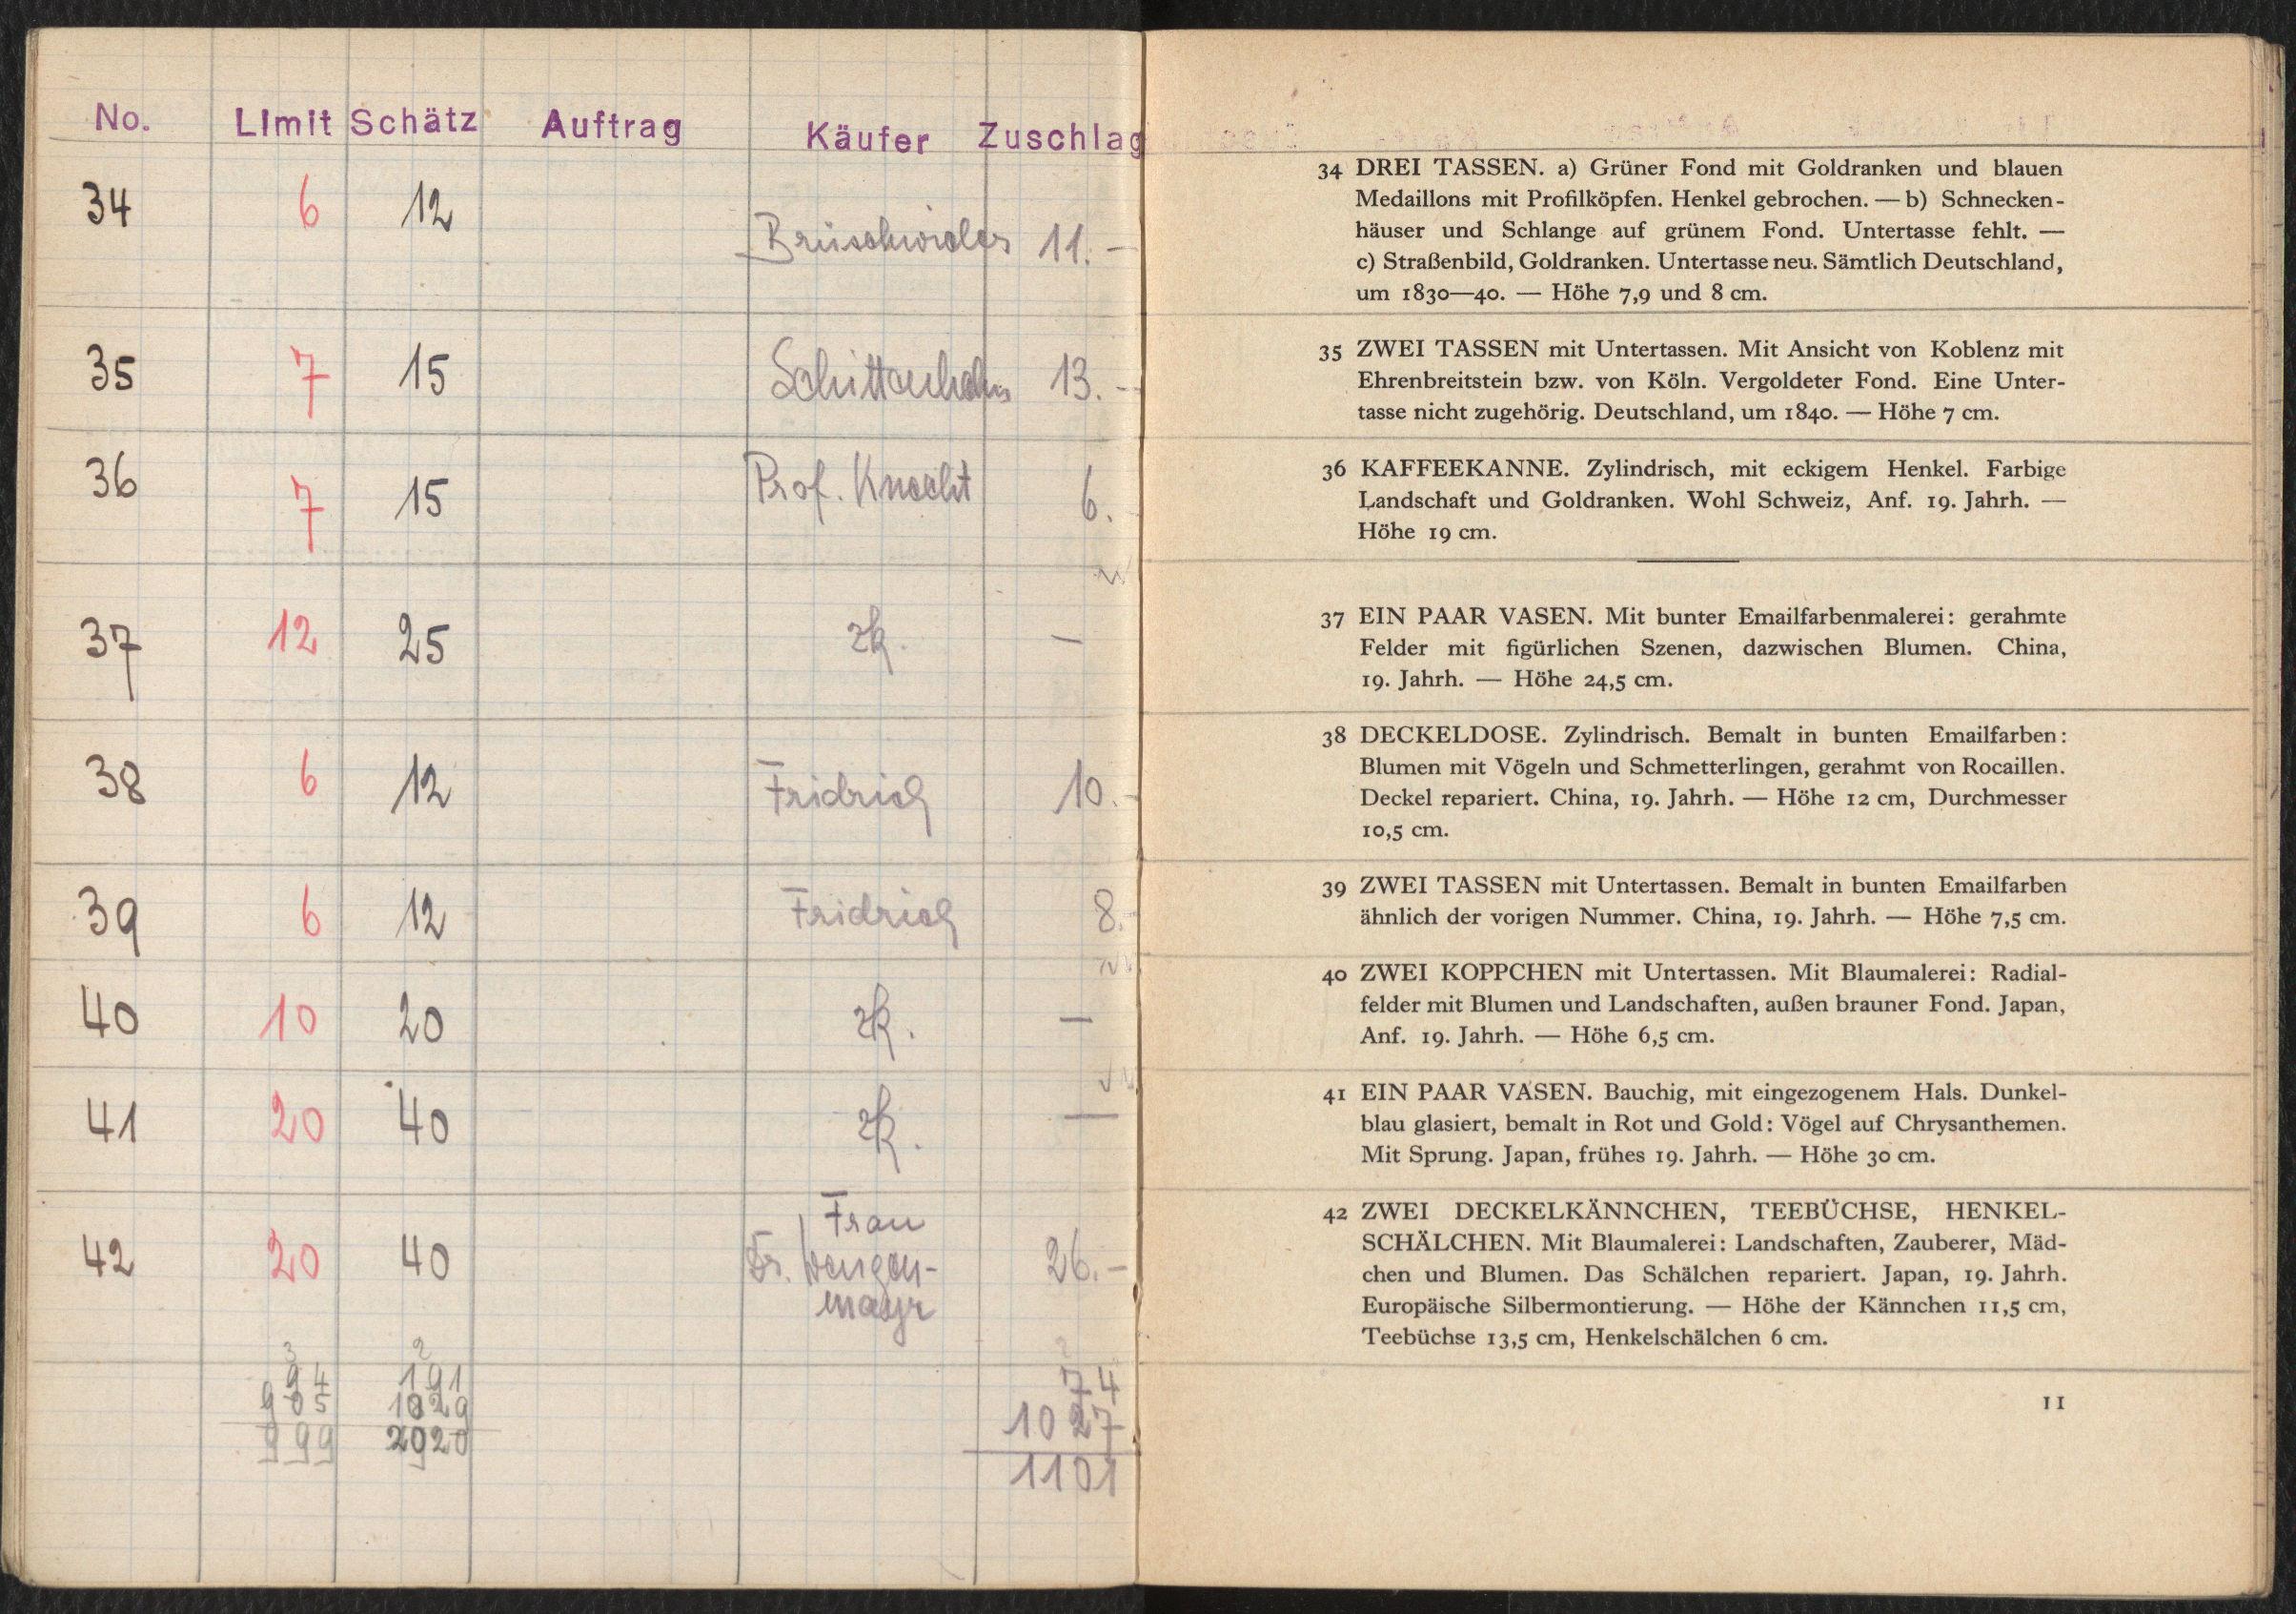 No. Limit Schätz Auftrag Käufer Zuschlag
34 6 12 Brüschwiler 11.—
35 7 15 Schittenhelm 13.—
36 7 15 Prof. Knecht 6.
37 12 25 zk. —
38 6 12 Fridrich 10.-
39 6 12 Fridrich 8.-
40 10 20 zk. —
41 20 40 zk. —
Frau
42 20 40 Dr. Wengen- 26.—
mayr
3 2 2
94 191 74
905 1829 1027
999 2020 1101
34 DREI TASSEN. a) Grüner Fond mit Goldranken und blauen
Medaillons mit Profilköpfen. Henkel gebrochen. — b) Schnecken-
häuser und Schlange auf grünem Fond. Untertasse fehlt. —
c) Straßenbild, Goldranken. Untertasse neu. Sämtlich Deutschland,
um 1830—40. — Höhe 7,9 und 8 cm.
35 ZWEI TASSEN mit Untertassen. Mit Ansicht von Koblenz mit
Ehrenbreitstein bzw. von Köln. Vergoldeter Fond. Eine Unter-
tasse nicht zugehörig. Deutschland, um 1840. — Höhe 7 cm.
36 KAFFEEKANNE. Zylindrisch, mit eckigem Henkel. Farbige
Landschaft und Goldranken. Wohl Schweiz, Anf. 19. Jahrh. —
Höhe 19 cm.
37 EIN PAAR VASEN. Mit bunter Emailfarbenmalerei: gerahmte
Felder mit figürlichen Szenen, dazwischen Blumen. China,
19. Jahrh. — Höhe 24,5 cm.
38 DECKELDOSE. Zylindrisch. Bemalt in bunten Emailfarben:
Blumen mit Vögeln und Schmetterlingen, gerahmt von Rocaillen.
Deckel repariert. China, 19. Jahrh. — Höhe 12 cm, Durchmesser
10,5 cm.
39 ZWEI TASSEN mit Untertassen. Bemalt in bunten Emailfarben
ähnlich der vorigen Nummer. China, 19. Jahrh. — Höhe 7,5 cm.
40 ZWEI KOPPCHEN mit Untertassen. Mit Blaumalerei: Radial-
felder mit Blumen und Landschaften, außen brauner Fond. Japan,
Anf. 19. Jahrh. — Höhe 6,5 cm.
41 EIN PAAR VASEN. Bauchig, mit eingezogenem Hals. Dunkel-
blau glasiert, bemalt in Rot und Gold: Vögel auf Chrysanthemen.
Mit Sprung. Japan, frühes 19. Jahrh. — Höhe 30 cm.
42 ZWEI DECKELKÄNNCHEN, TEEBÜCHSE, HENKEL-
SCHÄLCHEN. Mit Blaumalerei: Landschaften, Zauberer, Mäd-
chen und Blumen. Das Schälchen repariert. Japan, 19. Jahrh.
Europäische Silbermontierung. — Höhe der Kännchen 11,5 cm,
Teebüchse 13,5 cm, Henkelschälchen 6 cm.
11